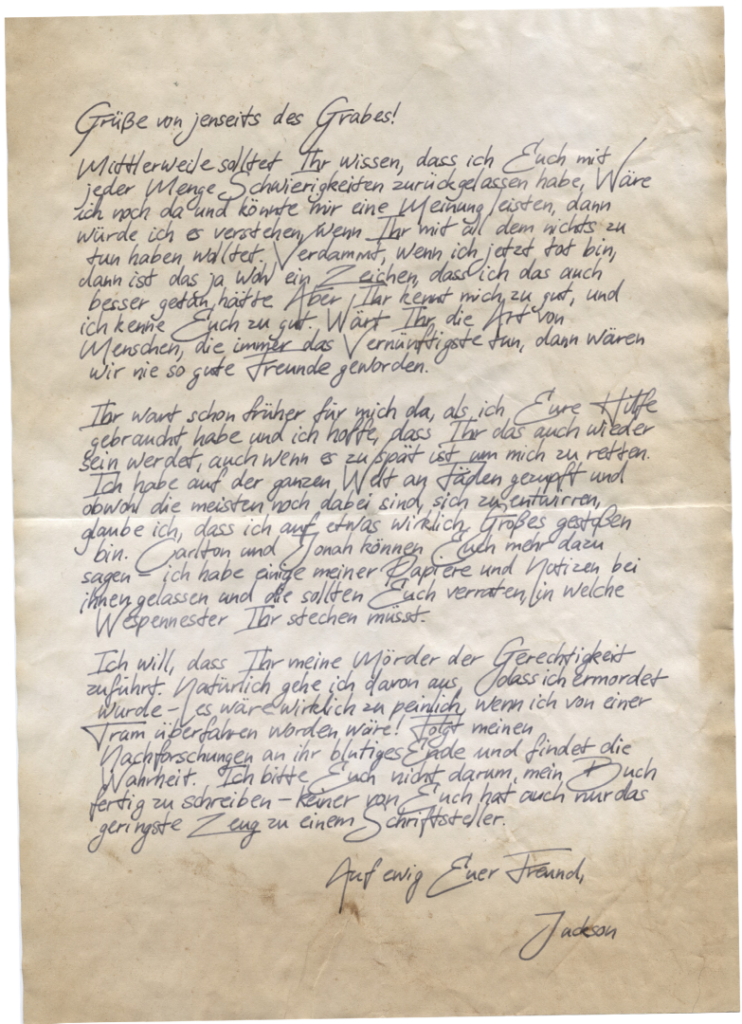 Grüße von jenseits des Grabes!
Mittlerweile solltet Ihr wissen, dass ich Euch mit
jeder Menge Schwierigkeiten zurückgelassen habe. Wäre
ich noch da und könnte mir eine Meinung leisten, dann
würde ich es verstehen, wenn Ihr mit all dem nichts zu
tun haben wolltet. Verdammt, wenn ich jetzt tot bin,
dann ist das ja wohl ein Zeichen, dass ich das auch
besser getan hätte. Aber Ihr kennt mich zu gut, und
ich kenne Euch zu gut. Wärt Ihr die Art von
Menschen, die immer das Vernünftigste tun, dann wären
wir nie so gute Freunde geworden.
Ihr wart schon früher für mich da, als ich Eure Hilfe
gebraucht habe und ich hoffe, dass Ihr das auch wieder
sein werdet, auch wenn es zu spät ist um mich zu retten.
Ich habe auf der ganzen Welt an Fäden gezupft und
obwohl die meisten noch dabei sind, sich zu entwirren,
glaube ich, dass ich auf etwas wirklich Großes gestoßen
bin. Carlton und Jonah können Euch mehr dazu
sagen – ich habe einige meiner Papiere und Notizen bei
ihnen gelassen und die sollten Euch verraten, in welche
Wespennester Ihr stechen müsst.
Ich will, dass Ihr meine Mörder der Gerechtigkeit
zuführt. Natürlich gehe ich davon aus, dass ich ermordet
wurde – es wäre wirklich zu peinlich, wenn ich von einer
Tram überfahren worden wäre! Folgt meinen
Nachforschungen an ihr blutiges Ende und findet die
Wahrheit. Ich bitte Euch nicht darum, mein Buch
fertig zu schreiben – keiner von Euch hat auch nur das
geringste Zeug zu einem Schriftsteller.
Auf ewig Euer Freund,
Jackson